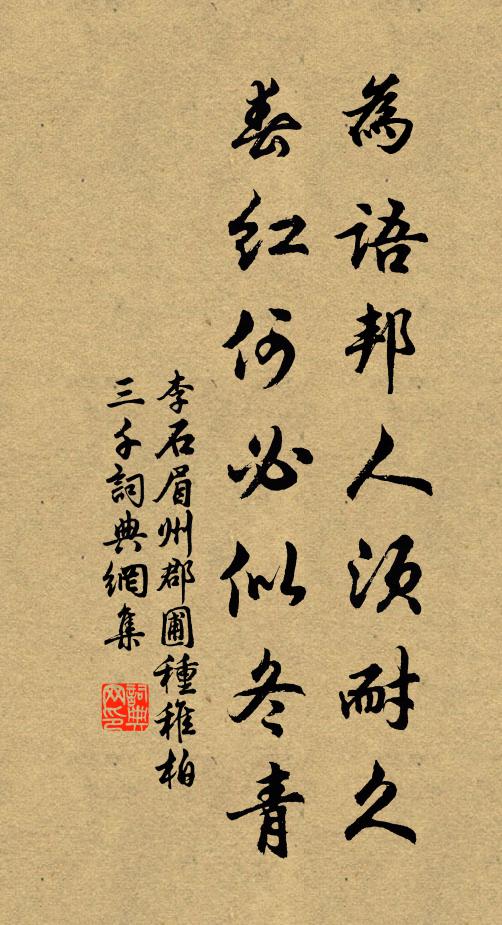 為語邦人須耐久
春紅何必似冬青
李石眉州郡圃種稚柏
三千詞典網集
詞典网印